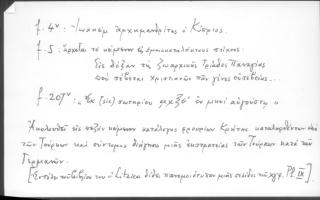 f. 4ᵛ: Ἰωακεὶμ ἀρχιμανδρίτης ὁ Κύπριος.
f. 5: ἄρχεται τὸ κείμενον εἰς ὁμοιοκαταλήκτους στίχους:
Εἰς δόξαν τῆς ζωαρχικῆς Τριάδος Παναγίας
ποὺ σέβεται χριστιανῶν τὸ γένος εὐσεβείας...
f. 207ᵛ: " (sic) σωτηρίου αχξζ' ἐν μηνὶ αὐγούστῳ "
Ἀκολουθεῖ εἰς πεζὸν κείμενον κατάλογος φρουρίων Κρήτης καταληφθέντων ὑπὸ
τῶν Τούρκων καὶ σύντομος διήγησις μιᾶς ἐκστρατείας τῶν Τούρκων κατὰ τῶν
Γερμανῶν.
[ ὁ Litzica δίδει πανομοιότυπον μιᾶς σελίδος τοῦ χφ. Pl. IX]